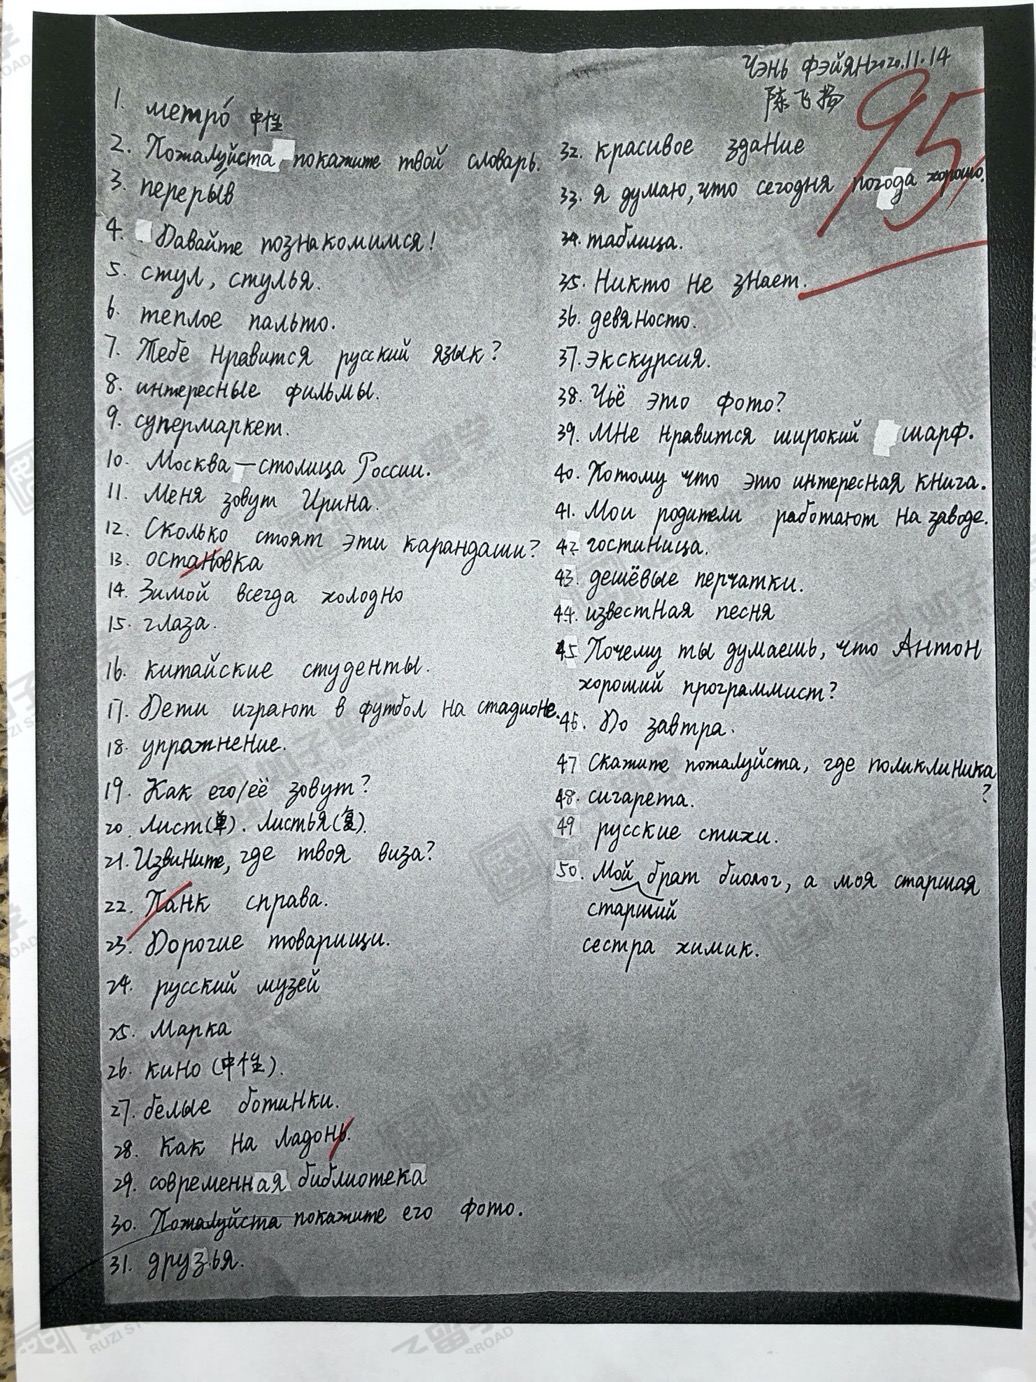 Чэнь Фэйян 2020.11.14
陈飞扬
95
1. метро́ 中性
2. Пожалуйста покажите твой словарь.
3. перерыв
4. Давайте познакомимся!
5. стул, стулья.
6. теплое пальто.
7. Тебе нравится русский язык?
8. интересные фильмы.
9. супермаркет.
10. Москва — столица России.
11. Меня зовут Ирина.
12. Сколько стоят эти карандаши?
13. остановка
14. Зимой всегда холодно
15. глаза.
16. китайские студенты.
17. Дети играют в футбол на стадионе.
18. упражнение.
19. Как его/её зовут?
20. Лист(单). Листья(复).
21. Извините, где твоя виза?
22. Панк справа.
23. Дорогие товарищи.
24. русский музей
25. Марка
26. кино (中性).
27. белые ботинки.
28. Как на ладонь.
29. современная библиотека
30. Пожалуйста покажите его фото.
31. друзья.
32. красивое здание
33. Я думаю, что сегодня погода хорошо.
34. таблица.
35. Никто не знает.
36. девяносто.
37. экскурсия.
38. Чьё это фото?
39. Мне нравится широкий шарф.
40. Потому что это интересная книга.
41. Мои родители работают на заводе.
42. гостиница.
43. дешёвые перчатки.
44. известная песня
45 Почему ты думаешь, что Антон
хороший программист?
46. До завтра.
47 Скажите пожалуйста, где поликлиника
?
48. сигарета.
49 русские стихи.
50. Мой брат биолог, а моя старшая
старший
сестра химик.